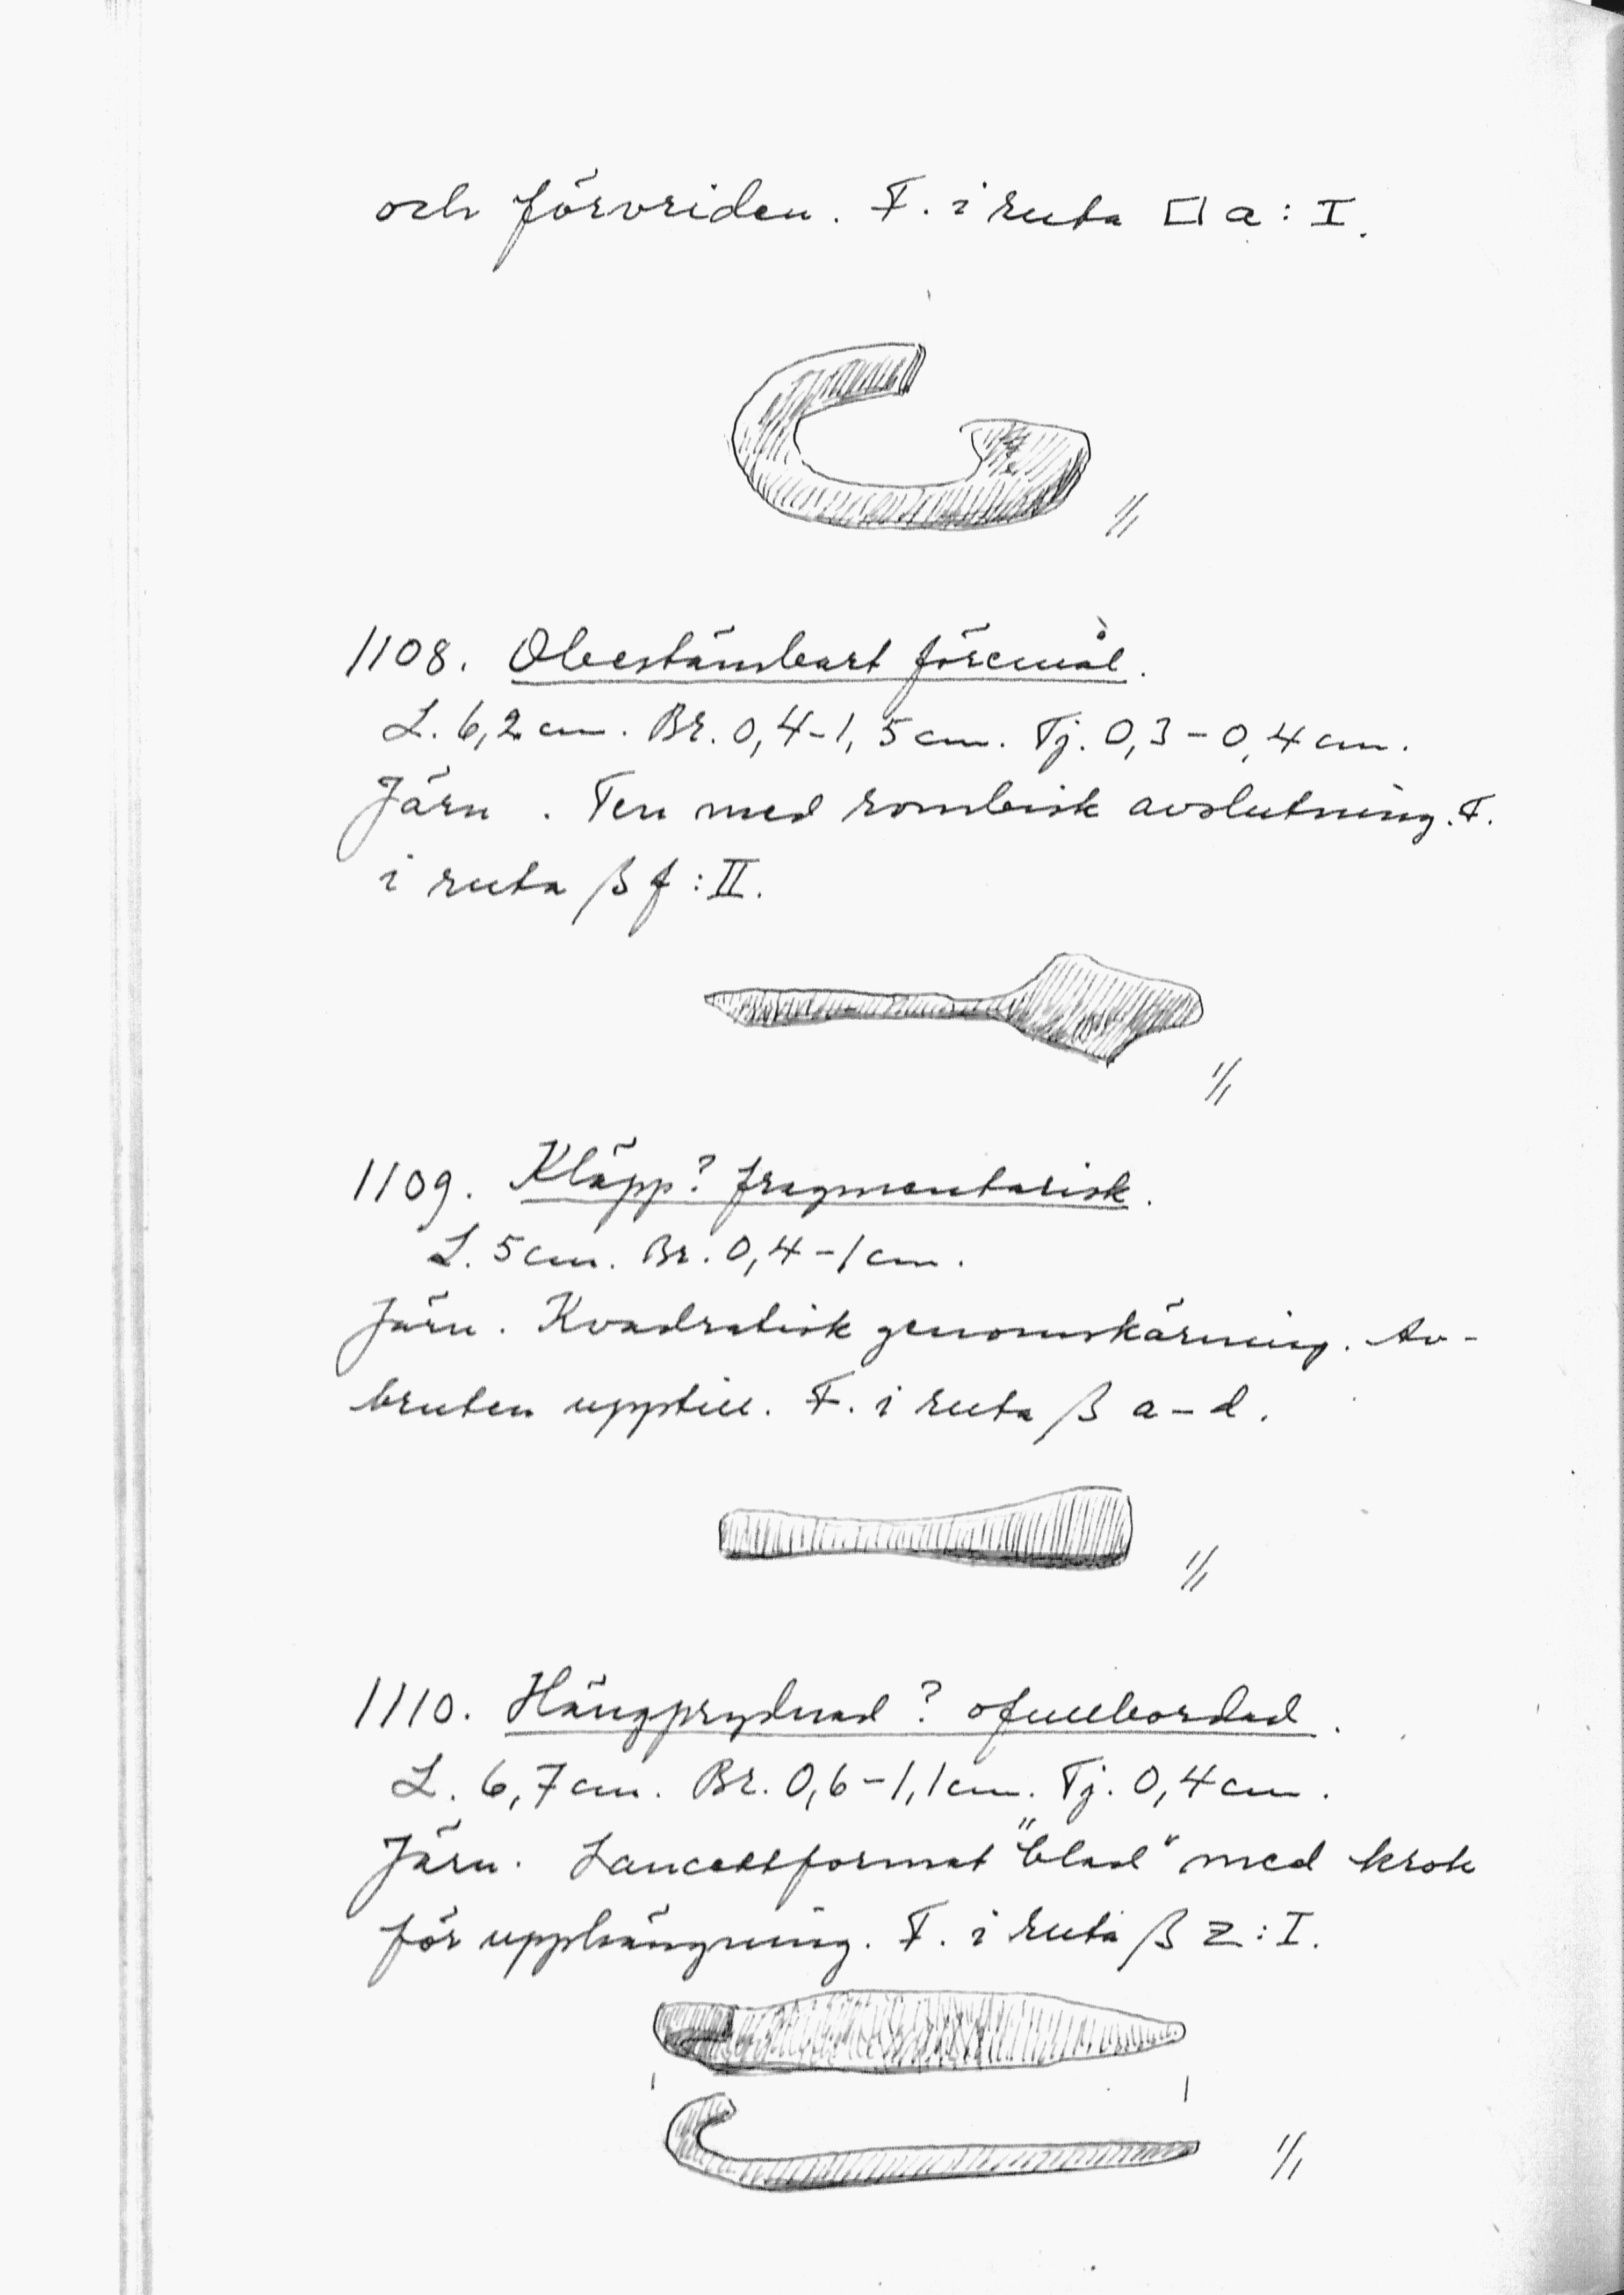 och förvriden. F. i ruta □ a : I.
1/1
1108. Obestämbart föremål.
L. 6,2 cm. Br. 0,4-1,5 cm. Tj. 0,3-0,4 cm.
Järn. Ten med rombisk avslutning. F.
i ruta ß f : II.
1/1
1109. Kläpp? fragmentarisk.
L. 5 cm. Br. 0,4-1 cm.
Järn. Kvadratisk genomskärning. Av-
bruten upptill. F. i ruta ß a-d.
1/1
1110. Hängprydnad? ofullbordad.
L. 6,7 cm. Br. 0,6-1,1 cm. Tj. 0,4 cm.
Järn. Lancettformat "blad" med krok
för upphängning. F. i ruta ß z : I.
1/1